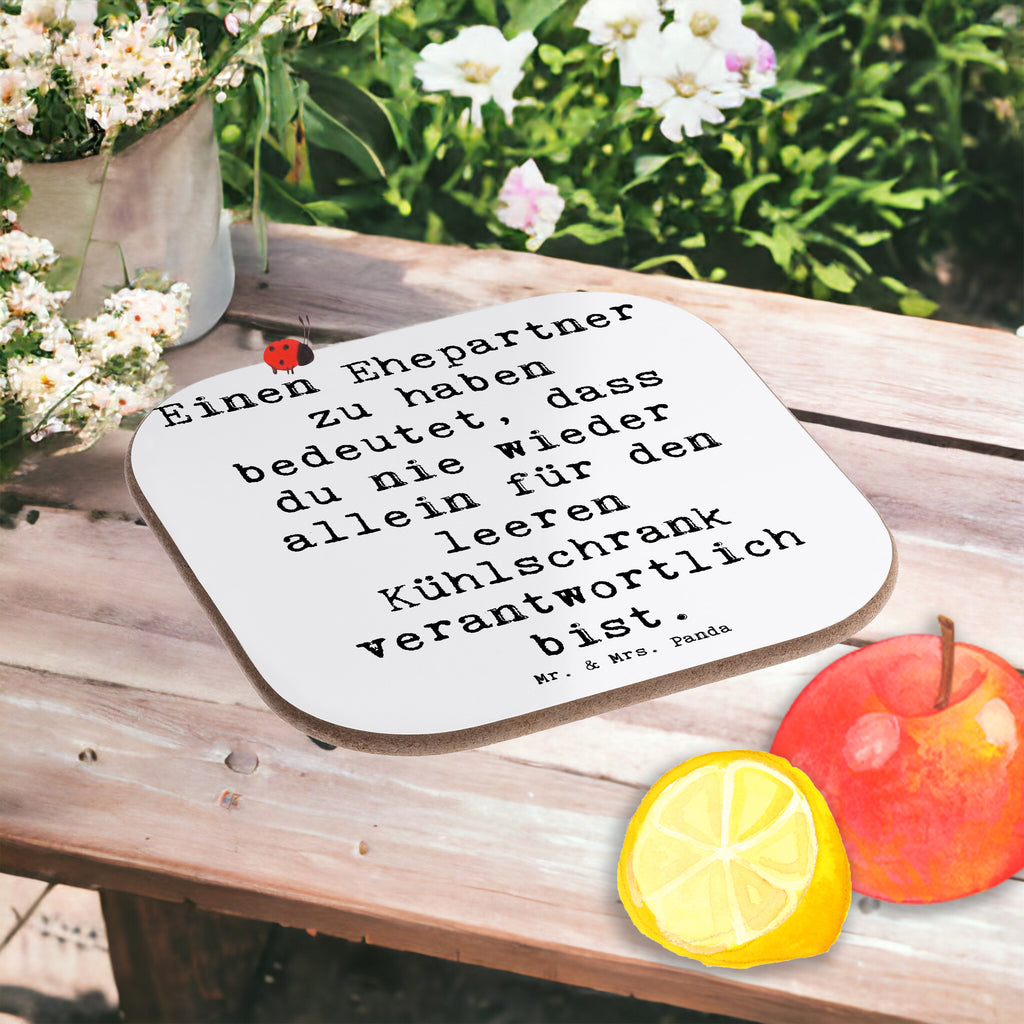 Einen Ehepartner
zu haben
bedeutet, dass
du nie wieder
allein für den
leeren
Kühlschrank
verantwortlich
bist.
Mr. & Mrs. Panda